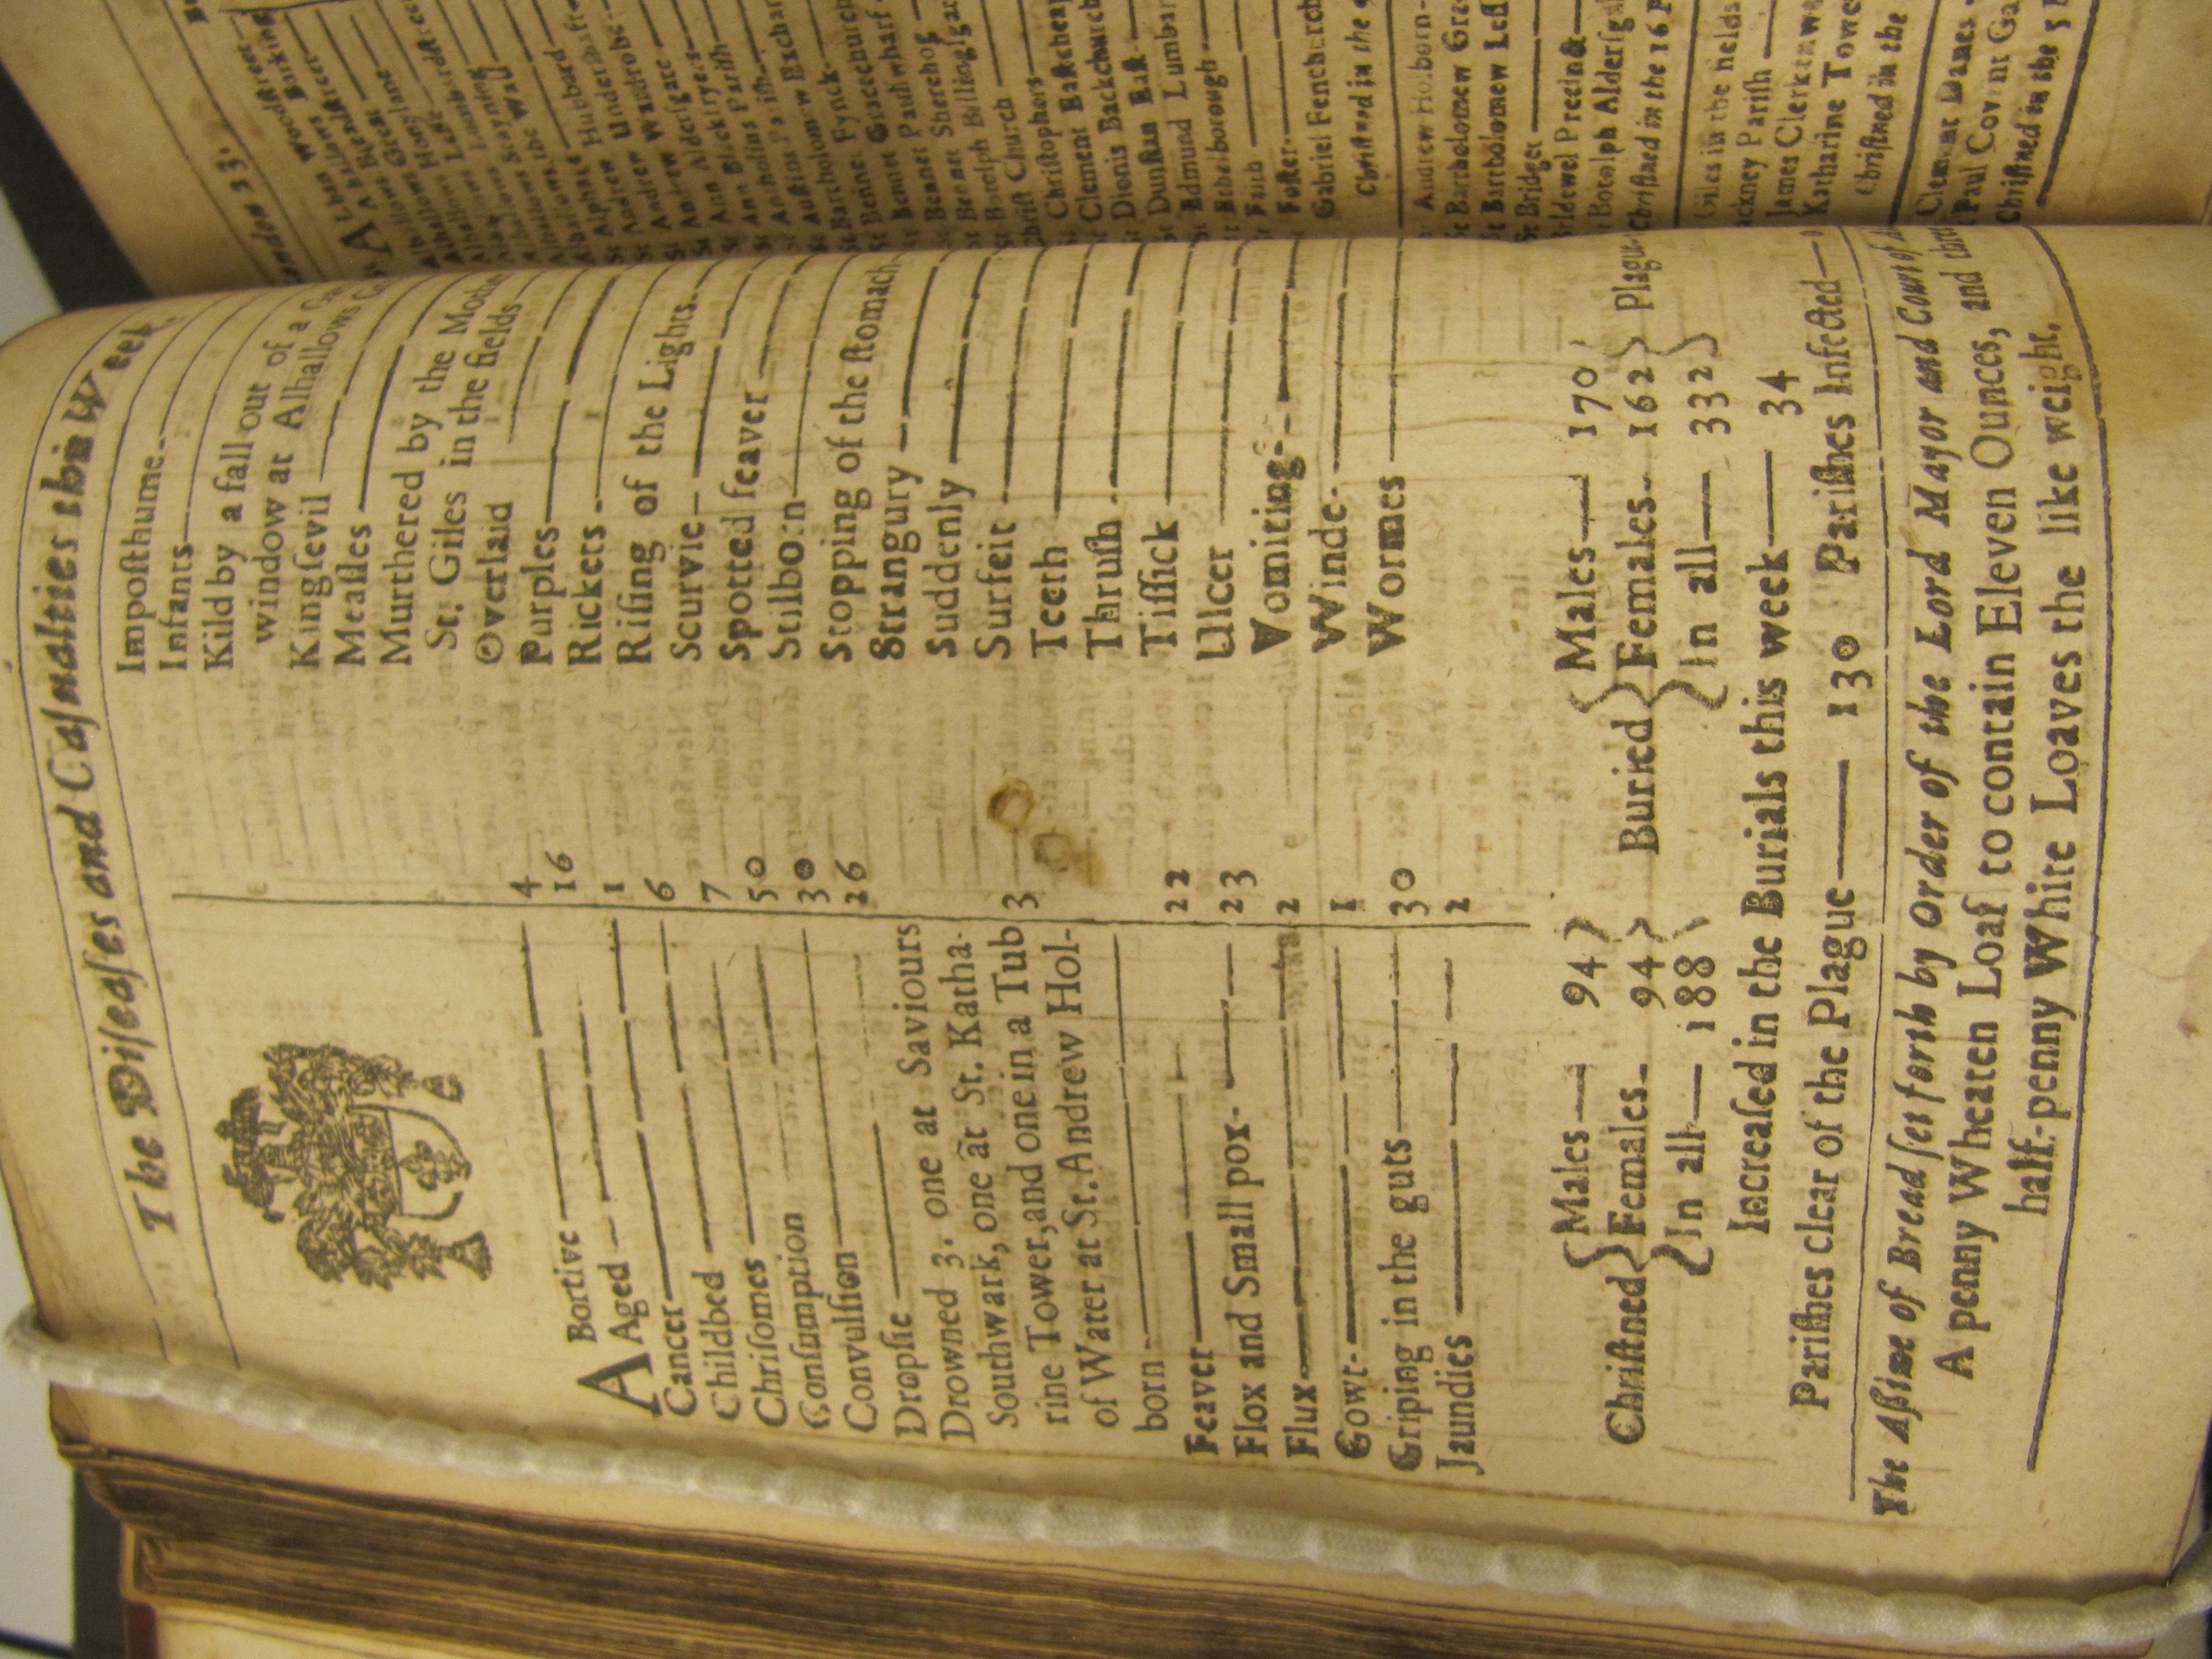 The Diſeaſes and Caſualties this Week.
ABortive 4
Aged 16
Cancer 1
Childbed 6
Chriſomes 7
Conſumption 50
Convulſion 30
Dropſie 26
Drowned 3. one at Saviours
Southwark, one at St. Katha-
rine Tower, and one in a Tub 3
of Water at St. Andrew Hol-
born
Feaver 22
Flox and Small pox 23
Flux 2
Gowt 1
Griping in the guts 30
Jaundies 2
Impoſthume
Infants
Kild by a fall out of a
window at Alhallows
Kingſevil
Meaſles
Murthered by the
St. Giles in the fields
Overlaid
Purples
Rickets
Riſing of the Lights
Scurvie
Spotted feaver
Stilborn
Stopping of the ſtomach
Strangury
Suddenly
Surfeit
Teeth
Thruſh
Tiſſick
Ulcer
Vomiting
Winde
Wormes
Males 94
Chriſtned Females 94
In all 188
Males 170
Buried Females 162 Plague
In all 332
Increaſed in the Burials this week 34
Pariſhes clear of the Plague 130 Pariſhes Infected
The Aſſize of Bread ſet forth by Order of the Lord Mayor and Court of
A penny Wheaten Loaf to contain Eleven Ounces, and
half-penny White Loaves the like weight.
23.
Alban Woodſtreet
Alhallows Barking
Alhallows Breadſtreet
Alhallows Honylane
Alhallows Stayning
Alhallows the Wall
Alphage
Andrew Hubbard
Andrew Underſhaft
Andrew Wardrobe
Ann Alderſgate
Ann Blackfryers
Antholins Pariſh
Auſtins Pariſh
Bartholomew Exchan
Bennet Fynck
Bennet Gracechurch
Bennet Paulſwharf
Bennet Sherehog
Botolph Billingſga
Chriſt Church
Chriſtophers
Clement Eaſtcheap
Dionis Backchurch
Dunſtan Eaſt
Edmund Lumbar
Ethelborough
Faith
Foſter
Gabriel Fenchurch
Chriſtned in the
Andrew Holborn
Bartholomew Gre
Bartholomew Leſſ
Bridget
Bridewel Precinct
Botolph Alderſga
Chriſtned in the 16 P
Giles in the fields
Hackney Pariſh
James Clerkenwe
Katharine Towe
Chriſtned in the
Clement Danes
Paul Covent Ga
Chriſtned in the 5